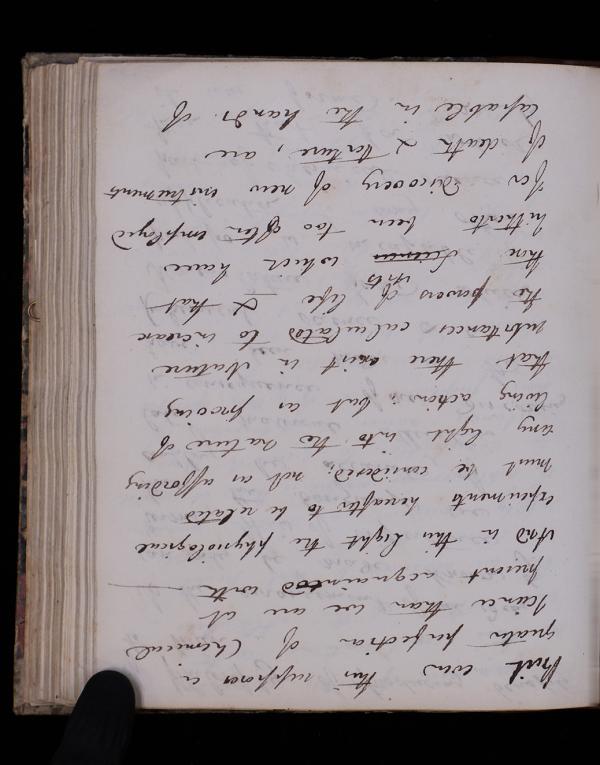 But even this supposes a
greater perfection of Chemical
Science than we are at
present acquainted with —
And in this light the physiological
experiments hereafter to be related
must be considered; not as affording
any light into the nature of
living action; but as proving
that there exist in Nature
substances calculated to increase
the powers of life & that
thin Sciences arts which have
hitherto been too often employed
for discovery of new instruments
of death & torture, are
capable in the hands of